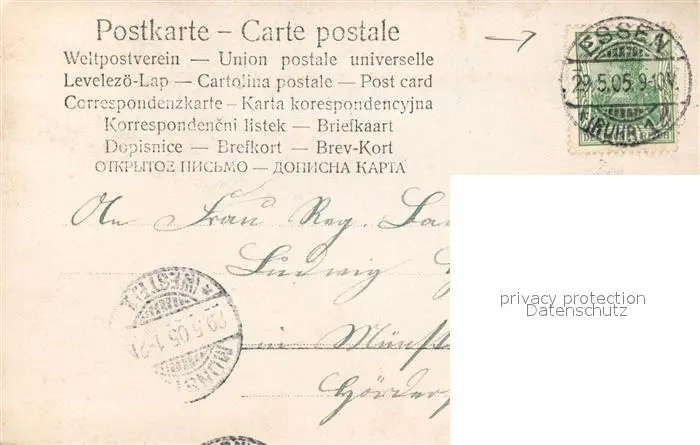 Postkarte – Carte postale
Weltpostverein — Union postale universelle
Levelező-Lap — Cartolina postale — Post card
Correspondenzkarte – Karta korespondencyjna
Korrespondenční listek — Briefkaart
Dopisnice — Brefkort — Brev-Kort
ОТКРЫТОЕ ПИСЬМО — ДОПИСНА КАРТА
ESSEN
29.5.05.9-10V.
(RUHR) 1
An Frau Reg.
Ludwig
in Münst
(WESTF.)
29.5.05.1-2
MÜNS
privacy protection
Datenschutz